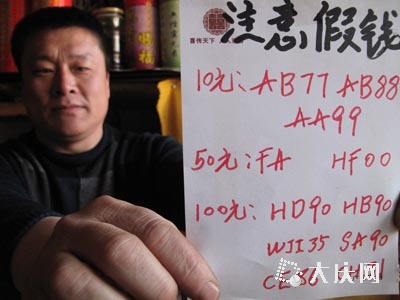 注意假钱
喜传天下
10元:AB77 AB88
AA99
50元:FA HF00
100元:HD90 HB90
WJI35 SA90
大庆网